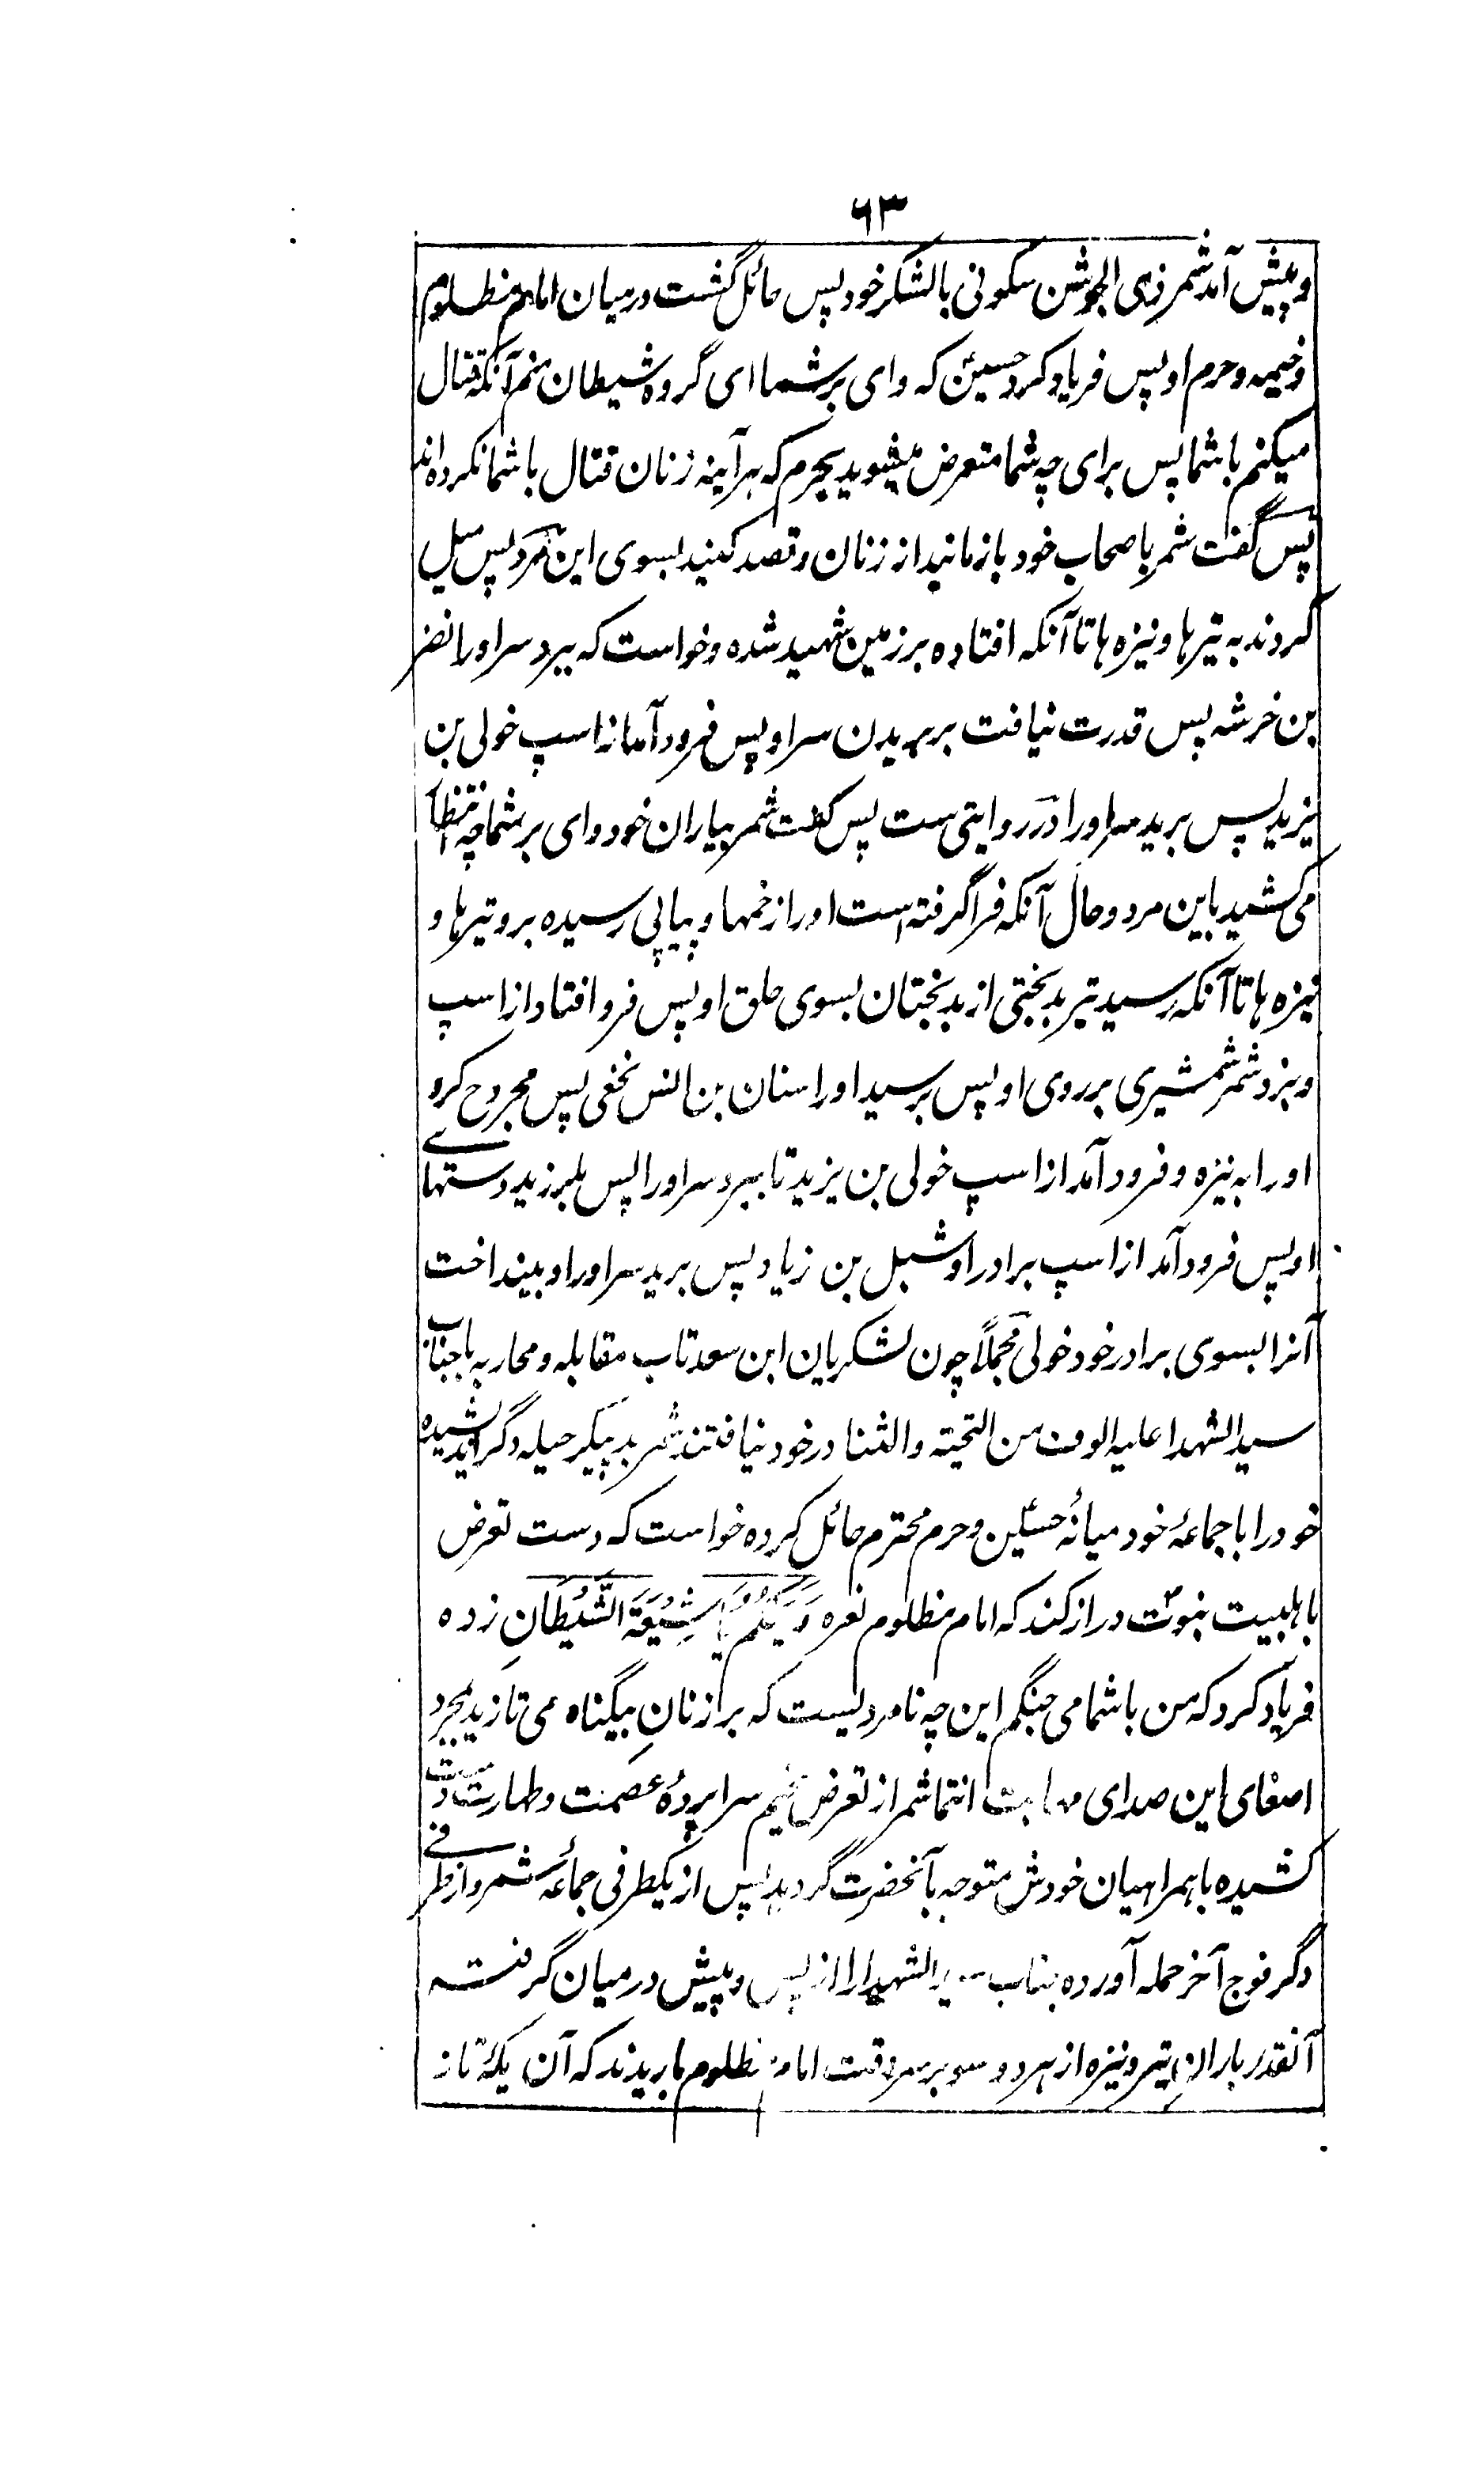 ۶۳
و پیش آمد شمر ذی الجوشن سکونی بالشکر خود پس حائل گشت درمیان امام مظلوم
و خیمه و حرم او پس فریاد کرد حسینؑ که وای بر شما ای گروه شیطان منم آنکه قتال
میکنم با شما پس برای چه شما متعرض میشوید بحرم که هر آینه زنان قتال با شما نکرده اند
پس گفت شمر باصحاب خود باز مانید از زنان و قصد کنید بسوی این مرد پس میل
کردند به تیرها و نیزه ها تا آنکه افتاده بر زمین شهید شده و خواست که ببرد سر او را نضر
بن خرشه پس قدرت نیافت بر بریدن سر او پس فرود آمد از اسپ خولی بن
یزید پس برید سر او را و در روایتی ست پس گفت شمر بیاران خود وای بر شما چه انتظار
می کشید باین مرد و حال آنکه فرا گرفته است او را زخمها و پیاپی رسیده برو تیرها و
نیزه ها تا آنکه رسید تیر بدبختی از بدبختان بسوی حلق او پس فرو افتاد از اسپ
و بزد شمر شمشیری بر روی او پس برسید او را سنان بن انس نخعی پس مجروح کرد
او را به نیزه و فرود آمد از اسپ خولی بن یزید تا ببرد سر او را پس بلرزید دستهای
او پس فرود آمد از اسپ برادر او شبل بن زیاد پس برید سر او را و بینداخت
آنرا بسوی برادر خود خولی مجملاً چون لشکریان ابن سعد تاب مقابله و محاربه با جناب
سید الشهدا علیه الوف من التحیته والثنا در خود نیافتند شمر بد پیکر حیله دگر اندیشیده
خود را با جماعهٔ خود میانهٔ حسینؑ و حرم محترم حائل کرده خواست که دست تعرض
باهلبیت نبوت دراز کند که امام مظلوم نعره وَیْلَکُمْ یَا شِیْعَةَ الشَّیْطَانِ زده
فریاد کرد که من با شما می جنگم این چه نامردیست که بر زنانِ بیگناه می تازید بمجرد
اصغای این صدای مهابت انتما شمر از تعرض خیم سراپردهٔ عصمت و طهارت دست
کشیده با همراهیان خودش متوجه آنحضرت گردید پس از یکطرفی جماعهٔ شمر و از طرفی
دگر فوج آخر حمله آورده جناب سید الشهدا را از پس و پیش درمیان گرفته
آنقدر بارانِ تیر و نیزه از هر دو سو بر سروقت امام مظلوم باریدند که آن یکه تاز